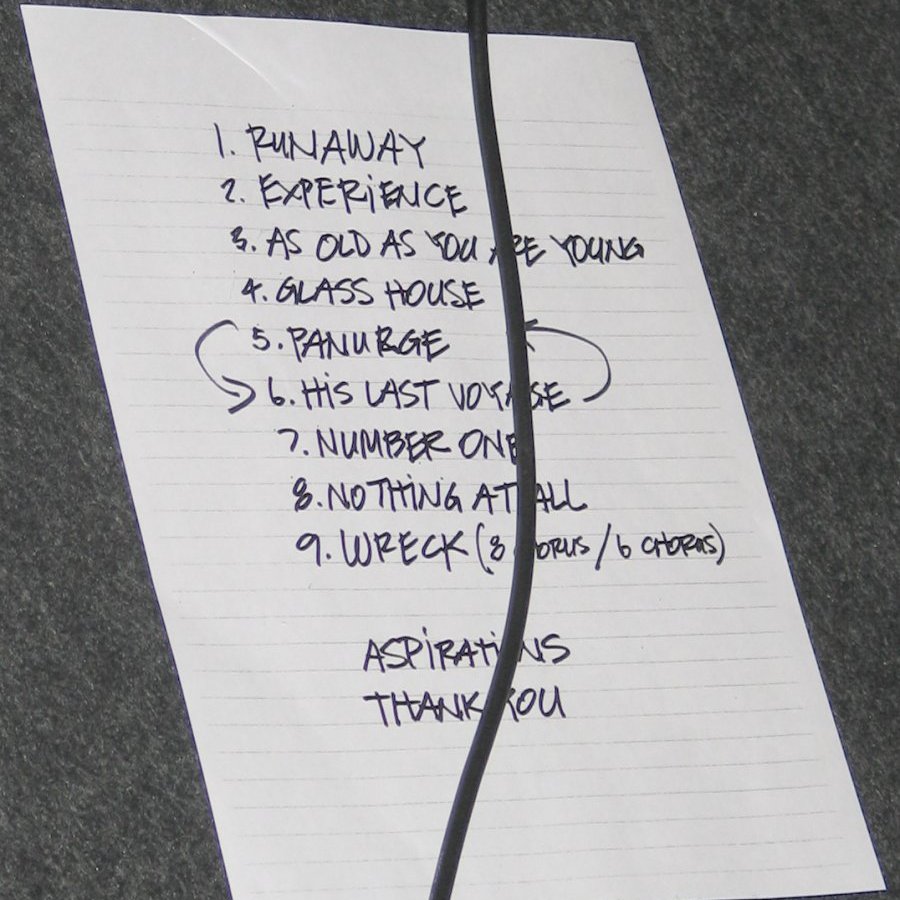 1. RUNAWAY
2. EXPERiENCE
3. AS OLD AS YOU ARE YOUNG
4. GLASS HOUSE
5. PANURGE
6. HiS LAST VOYAGE
7. NUMBER ONE
8. NOTHiNG AT ALL
9. WRECK (8 CHORUS / 6 CHORUS)
ASPiRATiONS
THANK YOU